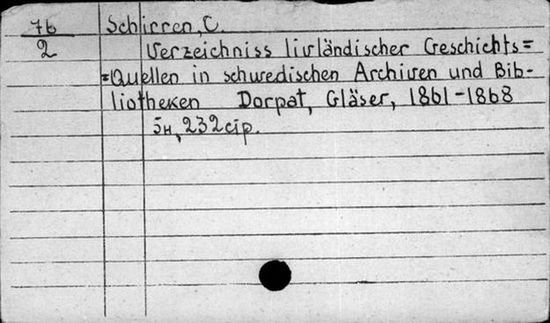 76 Schirren, C.
2 Verzeichniss livländischer Geschichts=
=Quellen in schwedischen Archiven und Bib-
liotheken Dorpat, Gläser, 1861-1868
5н, 232 стр.